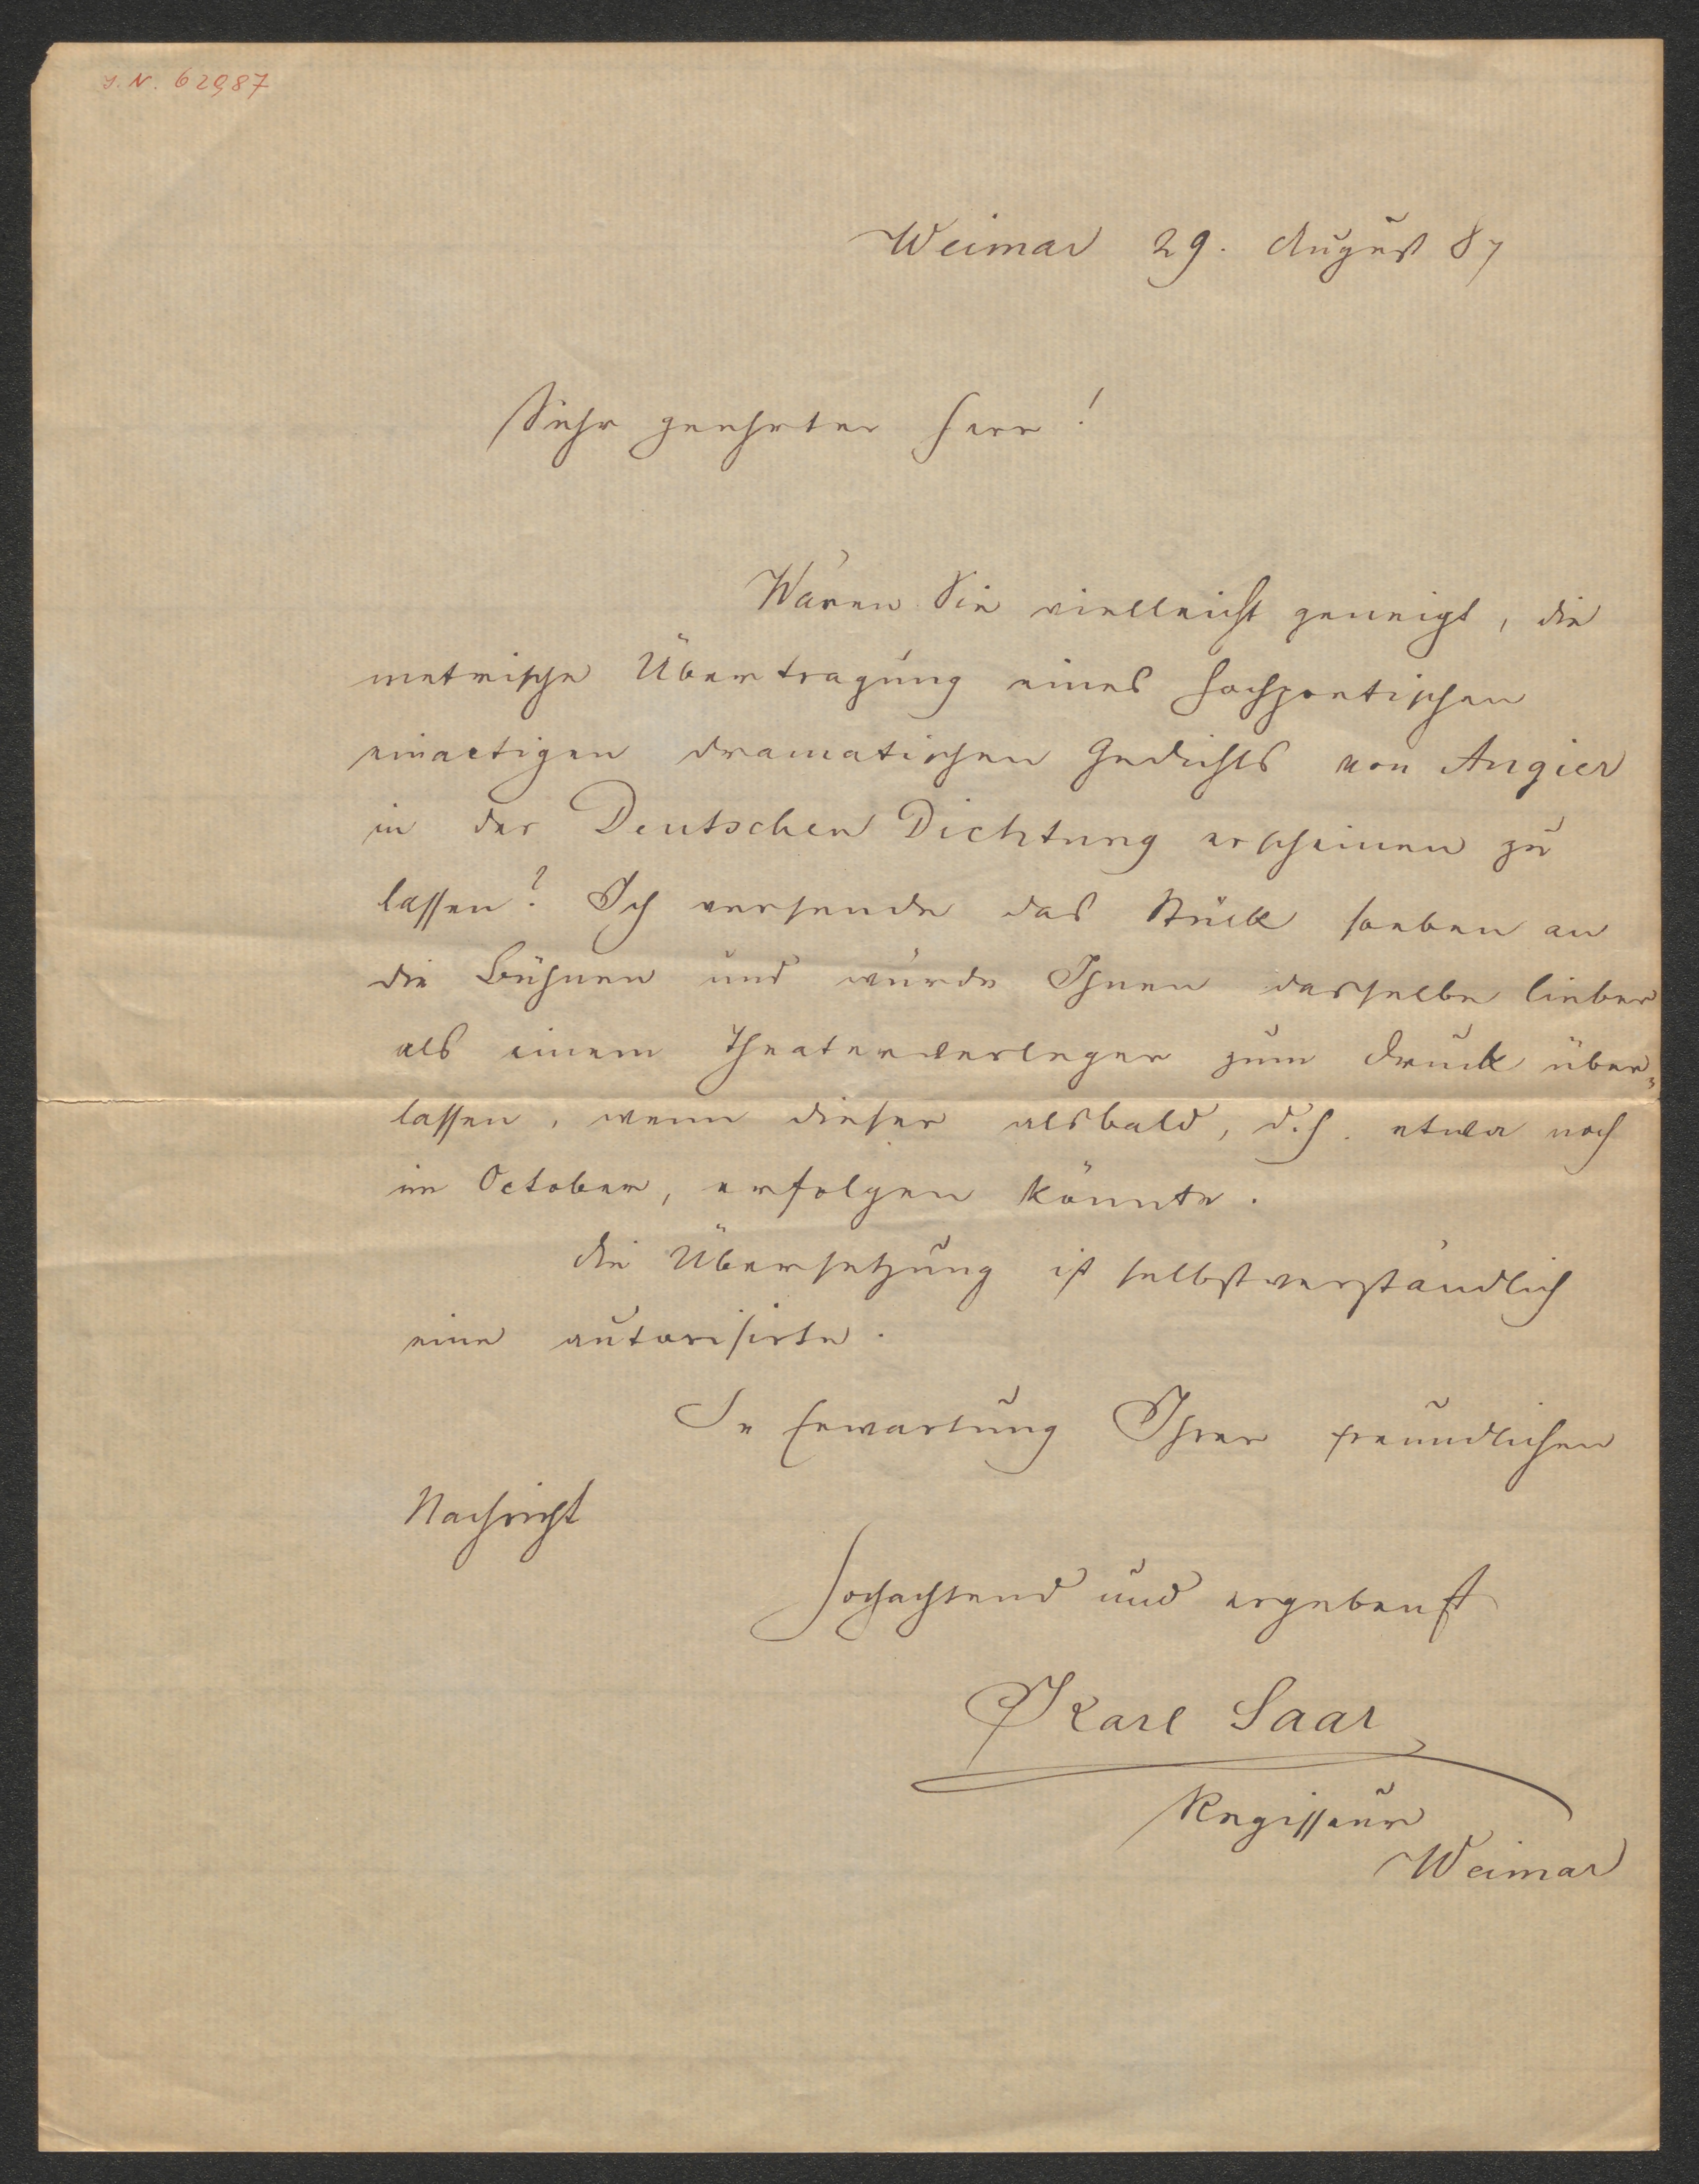 J. N. 62987
Weimar 29. August 87
Sehr geehrter Herr!
Wären Sie vielleicht geneigt, die
metrische Übertragung eines hochpoetischen
einactigen dramatischen Gedichts von Augier
in der Deutschen Dichtung erscheinen zu
lassen? Ich versende das Stück soeben an
die Bühnen und würde Ihnen dasselbe lieber
als einem Theaterverleger zum Druck über-
lassen, wenn dieser alsbald, d. h. etwa noch
im October, erfolgen könnte.
Die Übersetzung ist selbstverständlich
eine autorisirte.
In Erwartung Ihrer freundlichen
Nachricht
Hochachtend und ergebenst
Karl Saar
Regisseur
Weimar